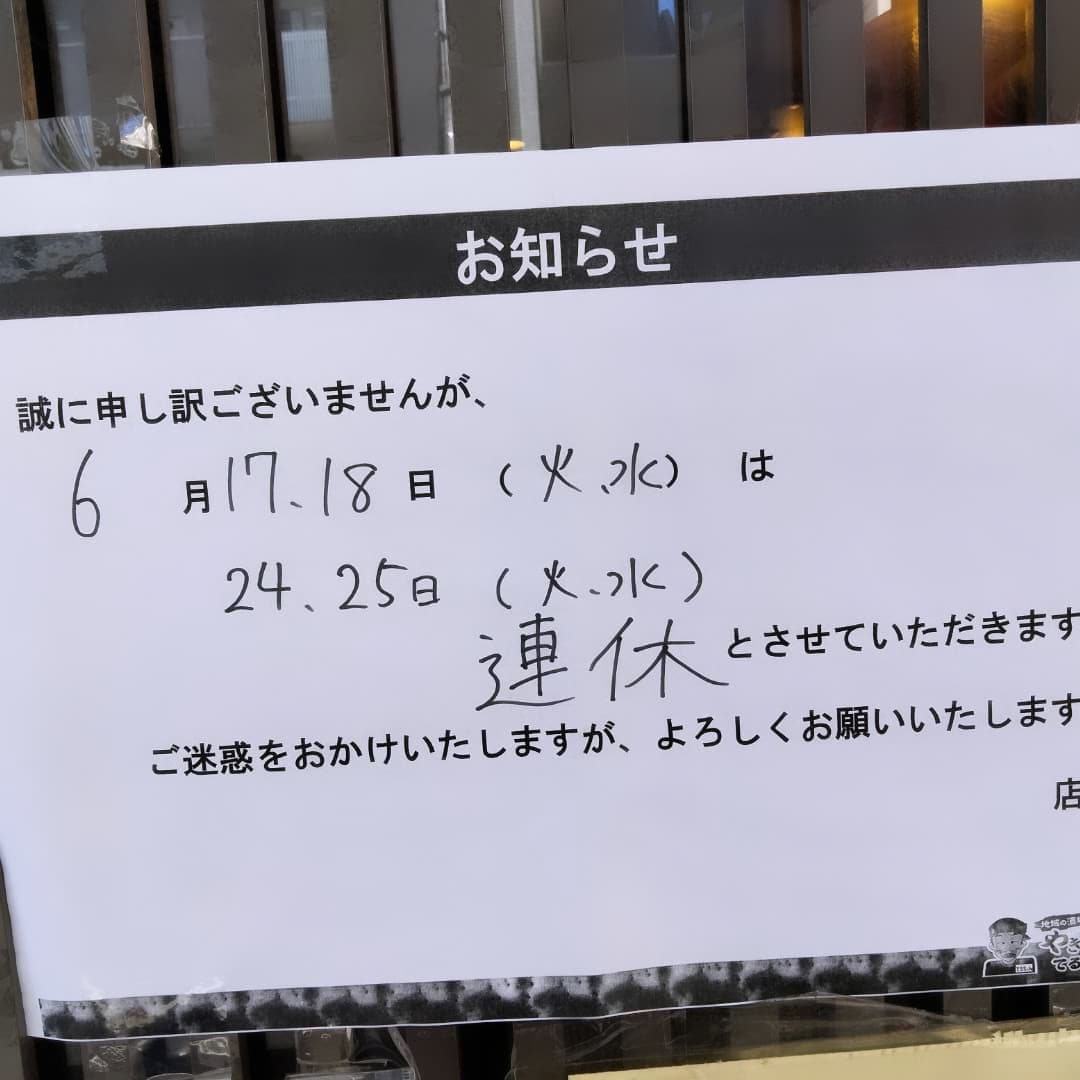 お知らせ
誠に申し訳ございませんが、
6月17、18日（火、水）は
24、25日（火、水）
連休とさせていただきます
ご迷惑をおかけいたしますが、よろしくお願いいたします
店
地域の酒
やき
てる